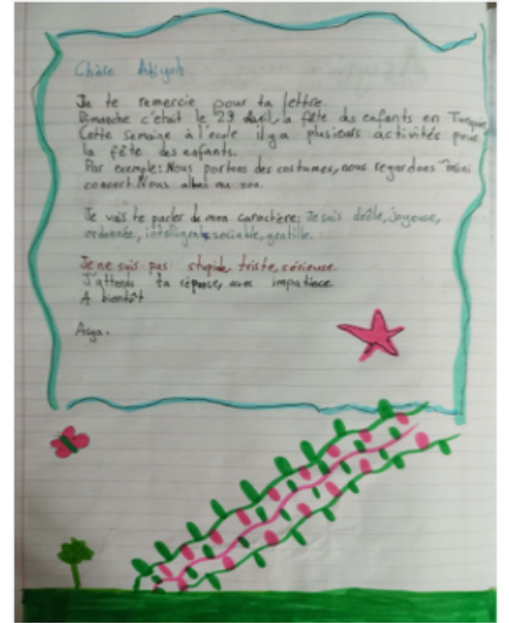 Chère
Je te remercie pour ta lettre.
Dimanche c'était le 23 avril, la fête des enfants en Turquie
Cette semaine à l'école il y a plusieurs activités pour
la fête des enfants.
Par exemple: Nous portons des costumes, nous regardons mini
concert. Nous au zoo.
Je vais te parler de mon caractère: Je suis drôle, joyeuse,
ordonnée, intelligente, sociable, gentille.
Je ne suis pas stupide, triste, sérieuse.
J'attends ta réponse, avec impatience
A bientôt
Asya.